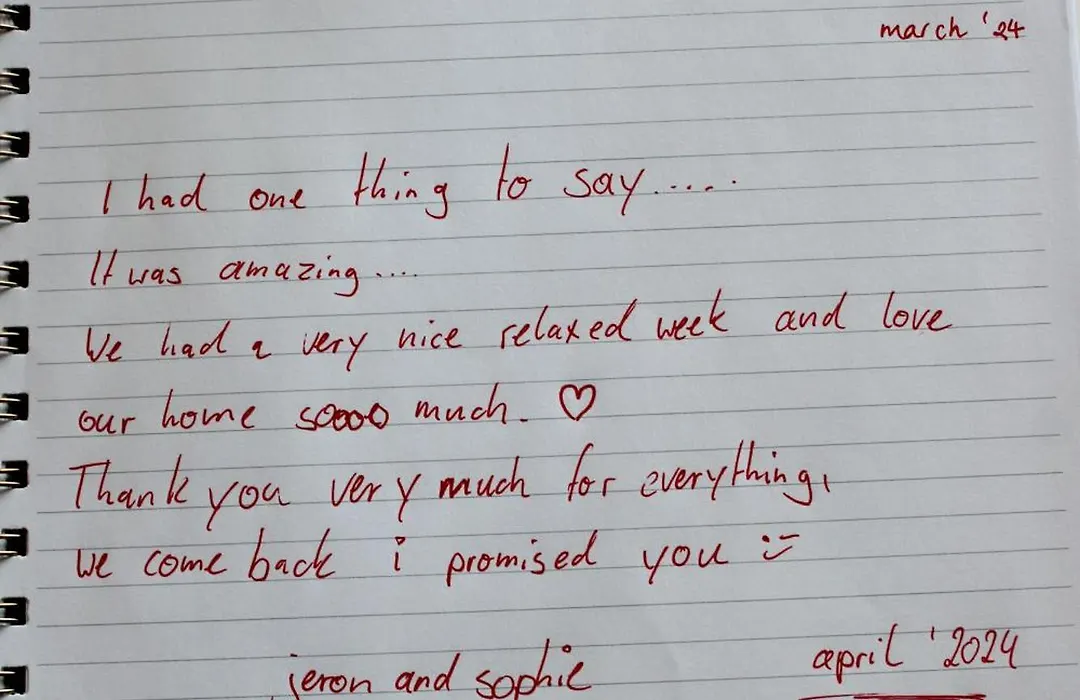 march '24
I had one thing to say.....
It was amazing....
We had a very nice relaxed week and love
our home soooo much. ♡
Thank you very much for everything,
we come back i promised you :-)
jeron and sophie
april '2024